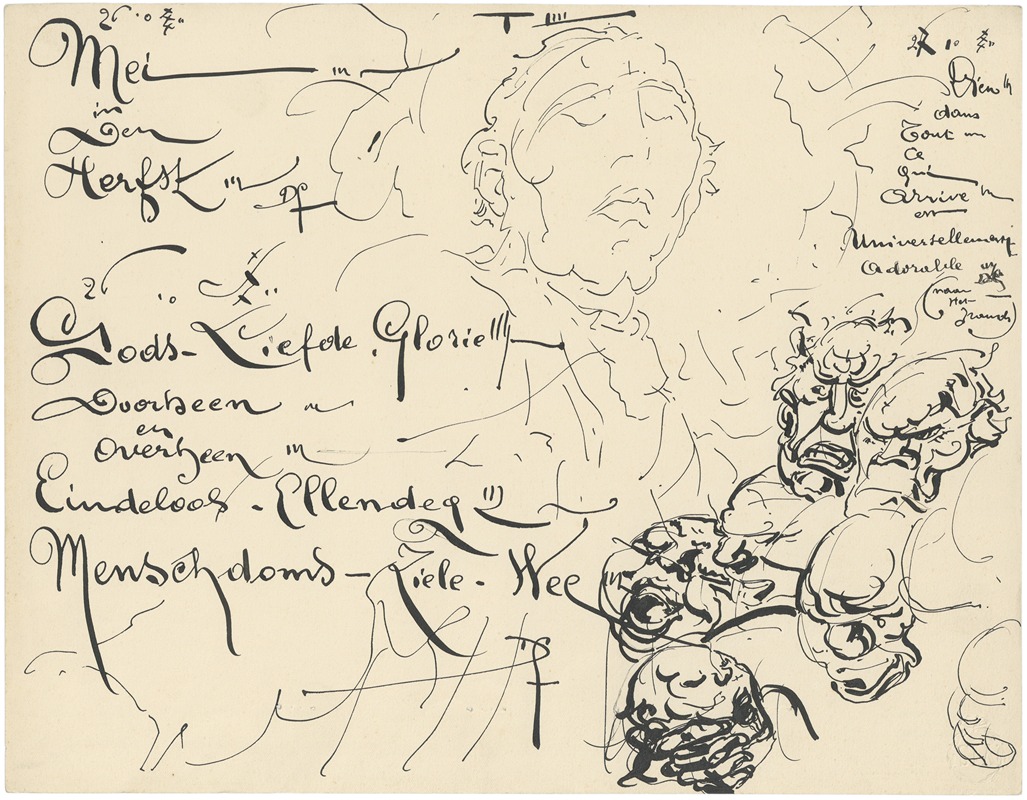 Mei
in
Den
Herfst
Gods-Liefde Glorie
Doorheen
en
Overheen
Eindeloos - Ellendeq
Menschdoms-Ziele-Wee
27 10
Dieu
dans
Tout
ce
qui
Arrive
est
Universellement
Adorable
(naar
Het
Fransch)